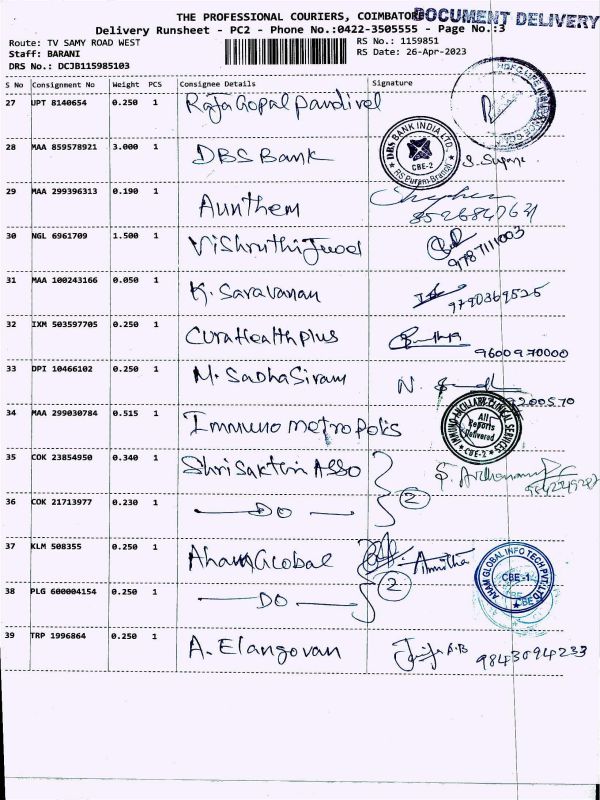 THE PROFESSIONAL COURIERS, COIMBATOR
DOCUMENT DELIVERY
Delivery Runsheet - PC2 - Phone No.:0422-3505555 - Page No.:3
Route: TV SAMY ROAD WEST RS No.: 1159851
Staff: BARANI RS Date: 26-Apr-2023
DRS No.: DCJB115985103
S No Consignment No Weight PCS Consignee Details Signature
27 UPT 8140654 0.250 1 RajaGopal pandivel
28 MAA 859578921 3.000 1 DBS Bank
DBS BANK INDIA LTD.
CBE-2
RS Puram-Branch
29 MAA 299396313 0.190 1 Aunthem 8526847631
30 NGL 6961709 1.500 1 Vishruthi Jwod 9787111003
31 MAA 100243166 0.050 1 K. Saravanan 9790369525
32 IXM 503597705 0.250 1 CuraHealthplus 9600970000
33 DPI 10466102 0.250 1 M. SadhaSivam
34 MAA 299030784 0.515 1 Immuno metropolis
IMMUNO ANCILLARY CLINICAL SERVICES
All Reports Delivered
CBE-2
35 COK 23854950 0.340 1 Shri Sakthi Asso
2
36 COK 21713977 0.230 1 DO
37 KLM 508355 0.250 1 Aham Global Amitha
2
AHAM GLOBAL INFO TECH PVT LTD
CBE-1
38 PLG 600004154 0.250 1 DO
39 TRP 1996864 0.250 1 A. Elangovan 9843094233